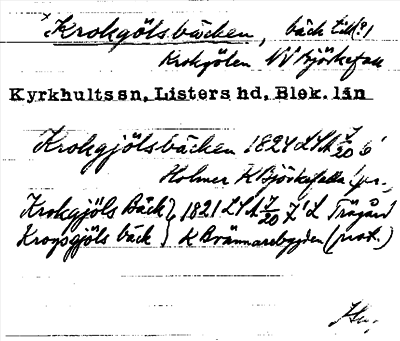 Krokgölsbäcken, bäck till(?)
Krokgölen NV Björkefall
Kyrkhults sn, Listers hd, Blek. län
Krokgjölsbäcken 1824 LSA 7/20 6'
Holmer K Björkefalla
Krokgjöls Bäck } 1821 LSA 7/20 L Trägård
Krogsgjöls bäck } K Brännarebygden (prot.)